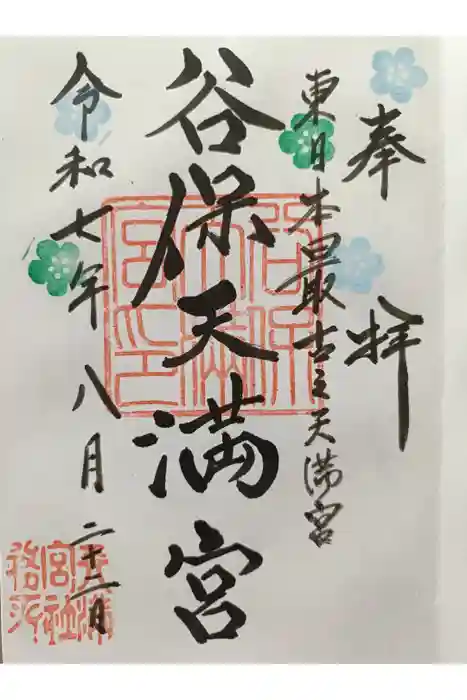 奉拝
東日本最古之天満宮
谷保天満宮
令和七年八月二十二日
谷保天満宮印
天満宮社務所